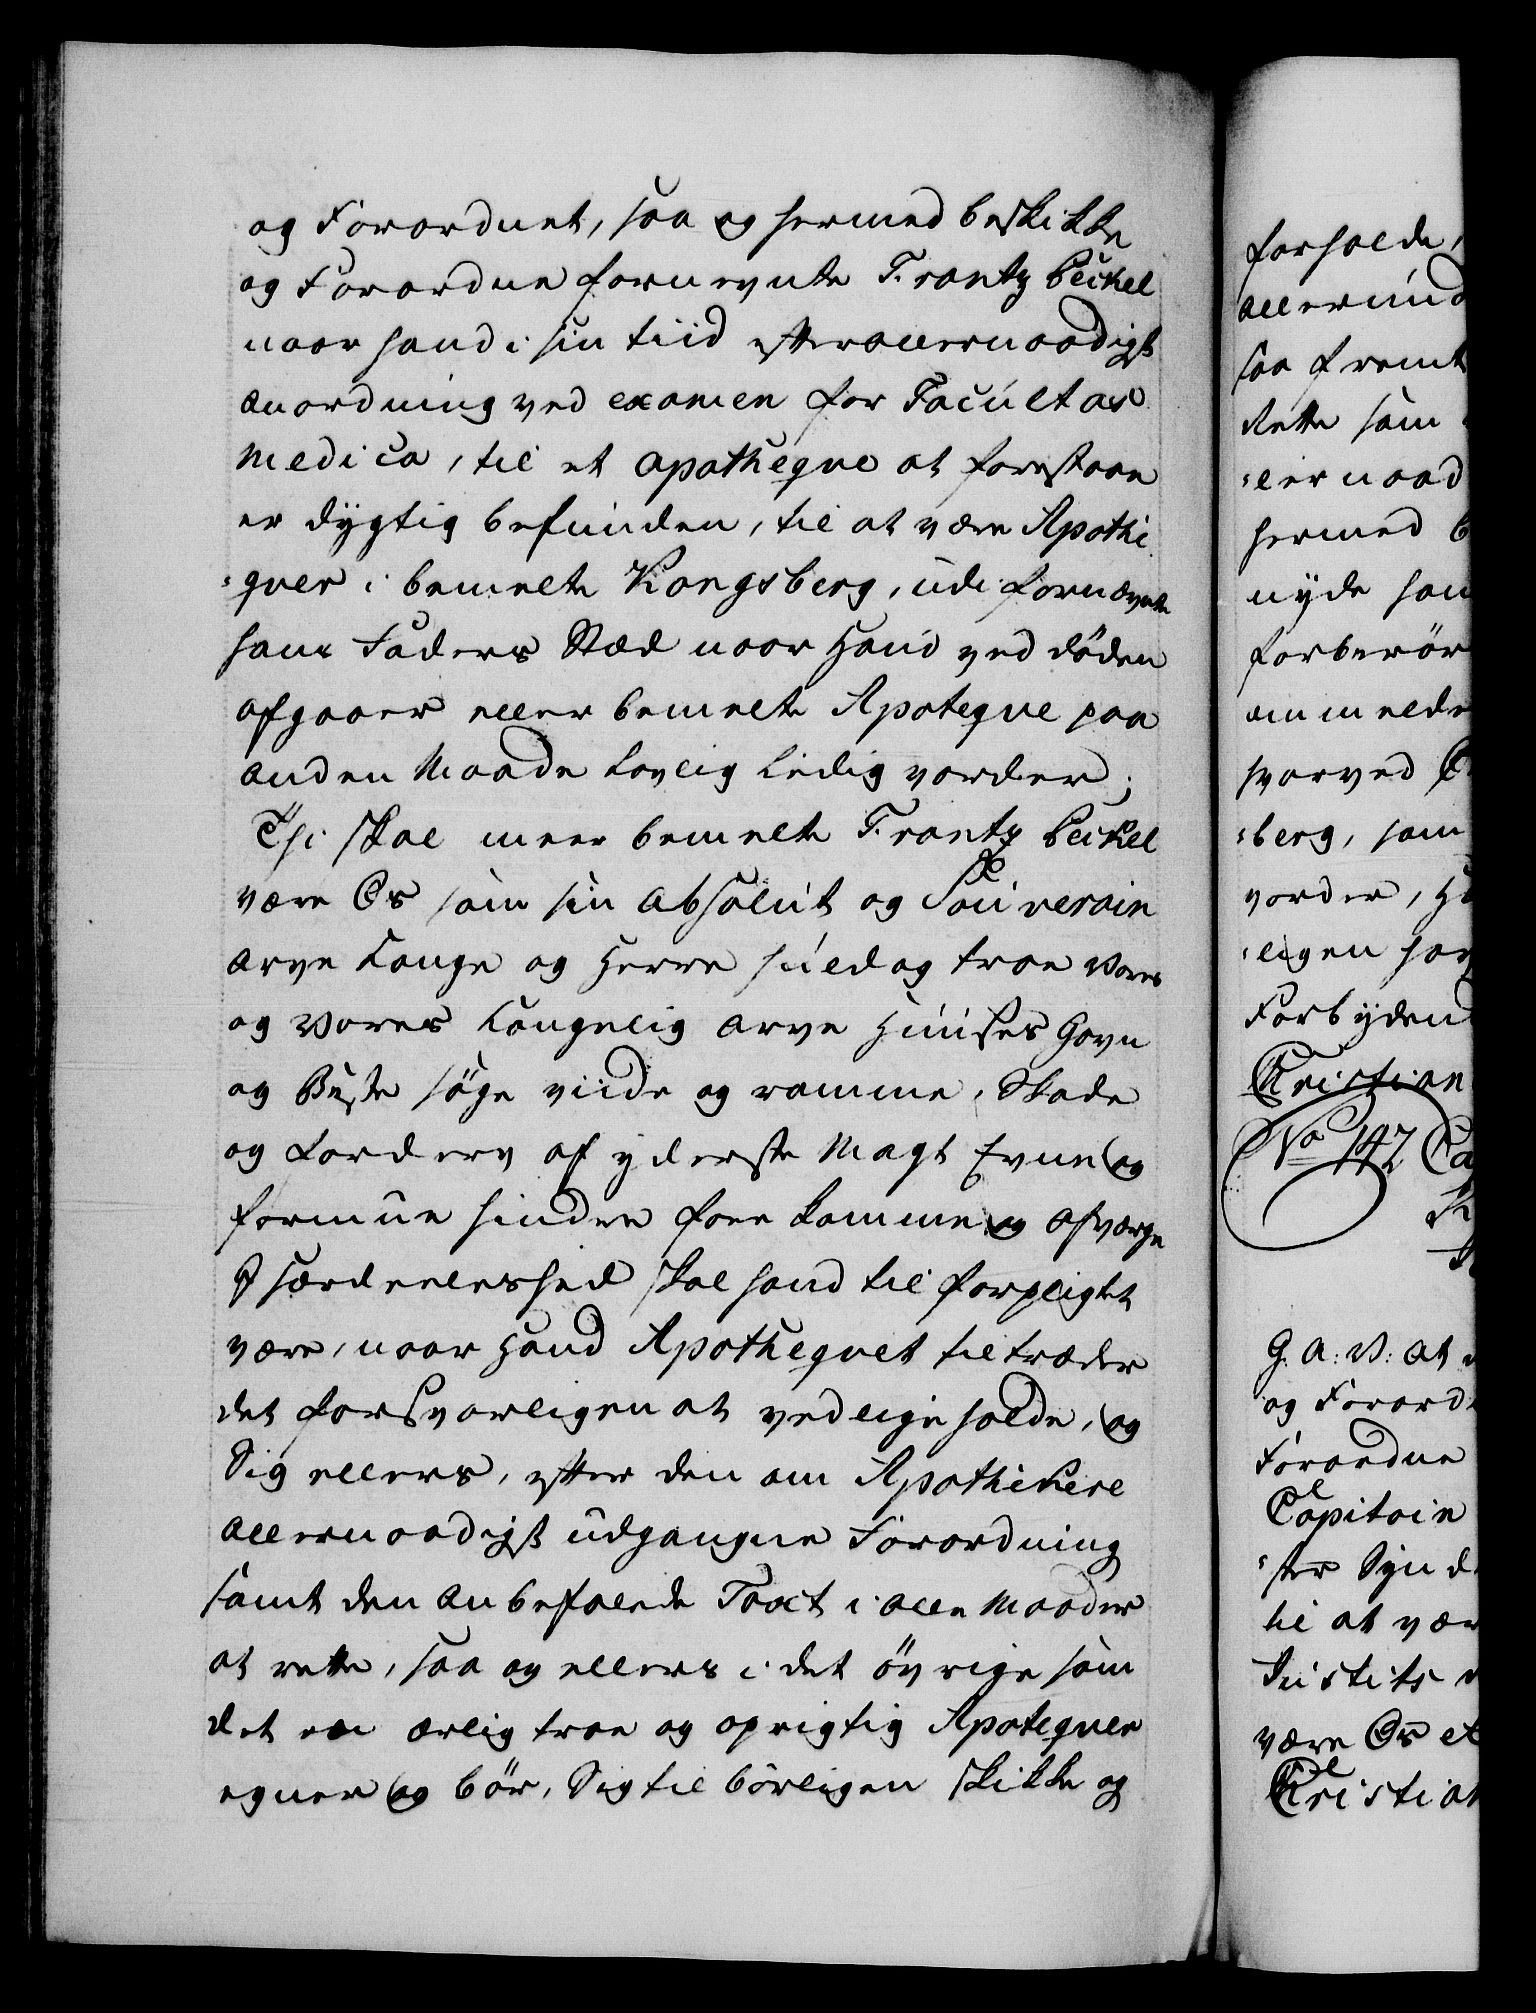 og Forordnet, saa og hermed beskikke
og Forordne fornevnte Frantz Peckel
naar hand i sin tiid effter allernaadigst
anordning ved examen for Facultas
Medica, til et apotheqve at forestaae
er dygtig befunden, til at være Apothe
=qver i bemelte Kongsberg, udi fornævnte
hans Faders Sted naar Hand ved döden
afgaaer eller bemelte Apoteqve paa
anden Maade Lovlig Ledig vorder;
Thi skal meer bemelte Frantz Peckel
være Os som sin Absolut og Souverain
Arve Konge og Herre huld og troe Vores
og Vores Kongelig Arve Huuses Gavn
og Beste søge viide og ramme, Skade
og Forderv af yderste Magt Evne og
formue hindre fore komme og afværge
I særdeeleshed skal hand til forpligtet
være, naar Hand Apotheqvet tiltræder
det forsvarligen at vedlige holde, og
Sig ellers, efter den om Apothekere
allernaadigst udgangne Forordning
samt den anbefalede Taxt i alle Maader
at rette, saa og ellers i det övrige som
det een ærlig troe og oprigtig Apoteqver
egner og bör, Sig til börligen skikke og
forholde,
allerund
saa fremt
dette som
=lernaad
hermed b
nyde han
forberör
ommelde
svorved
=berg, som
vorder, H
=ligen for
Forbydend
Christian
No 142 Ca
G: A: V: at
og Forord
Forordne
Capitain
=ster Synd
til at vær
Justits
være Os et
Christian